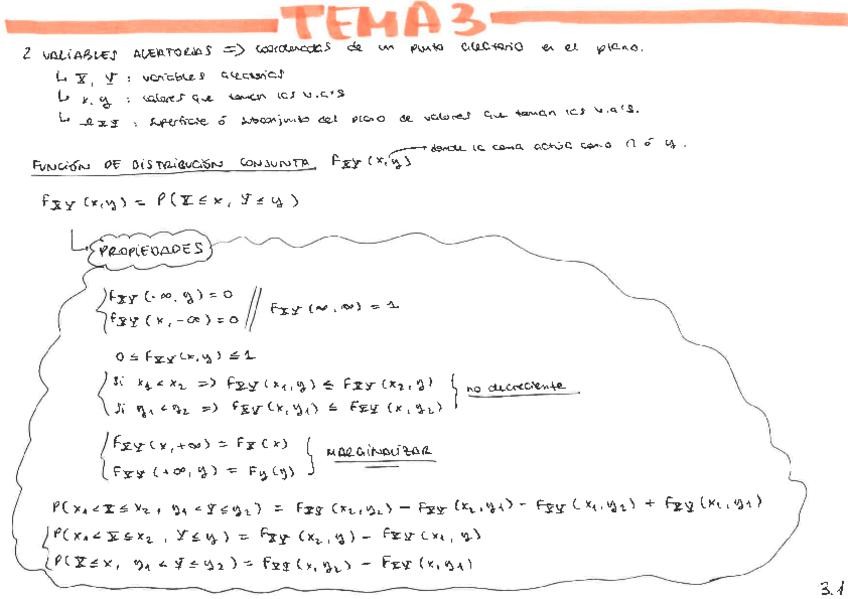 TEMA 3
2 VARIABLES ALEATORIAS => coordenadas de un punto aleatorio en el plano.
↳ X, Y : variables aleatorias
↳ x, y : valores que toman las v.a's
↳ ΩXY : superficie ó subconjunto del plano de valores que toman las v.a's.
FUNCIÓN DE DISTRIBUCIÓN CONJUNTA FXY (x,y) → donde la coma actúa como ∩ ó y.
FXY (x,y) = P(X ≤ x, Y ≤ y)
↳ PROPIEDADES
FXY (-∞, y) = 0 // FXY (∞, ∞) = 1
FXY (x, -∞) = 0
0 ≤ FXY (x,y) ≤ 1
Si x1 < x2 => FXY (x1, y) ≤ FXY (x2, y) } no decreciente
Si y1 < y2 => FXY (x, y1) ≤ FXY (x, y2)
FXY (x, +∞) = FX (x) } MARGINALIZAR
FXY (+∞, y) = Fy (y)
P(x1 < X ≤ x2, y1 < Y ≤ y2) = FXY (x2, y2) - FXY (x2, y1) - FXY (x1, y2) + FXY (x1, y1)
P(x1 < X ≤ x2, Y ≤ y) = FXY (x2, y) - FXY (x1, y)
P(X ≤ x, y1 < Y ≤ y2) = FXY (x, y2) - FXY (x, y1)
3.1